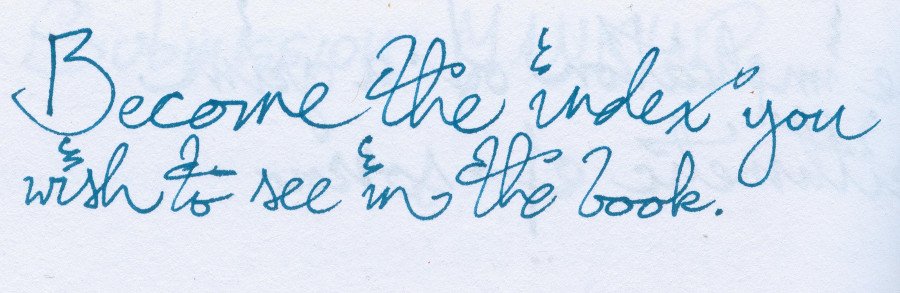 Become the index you
wish to see in the book.